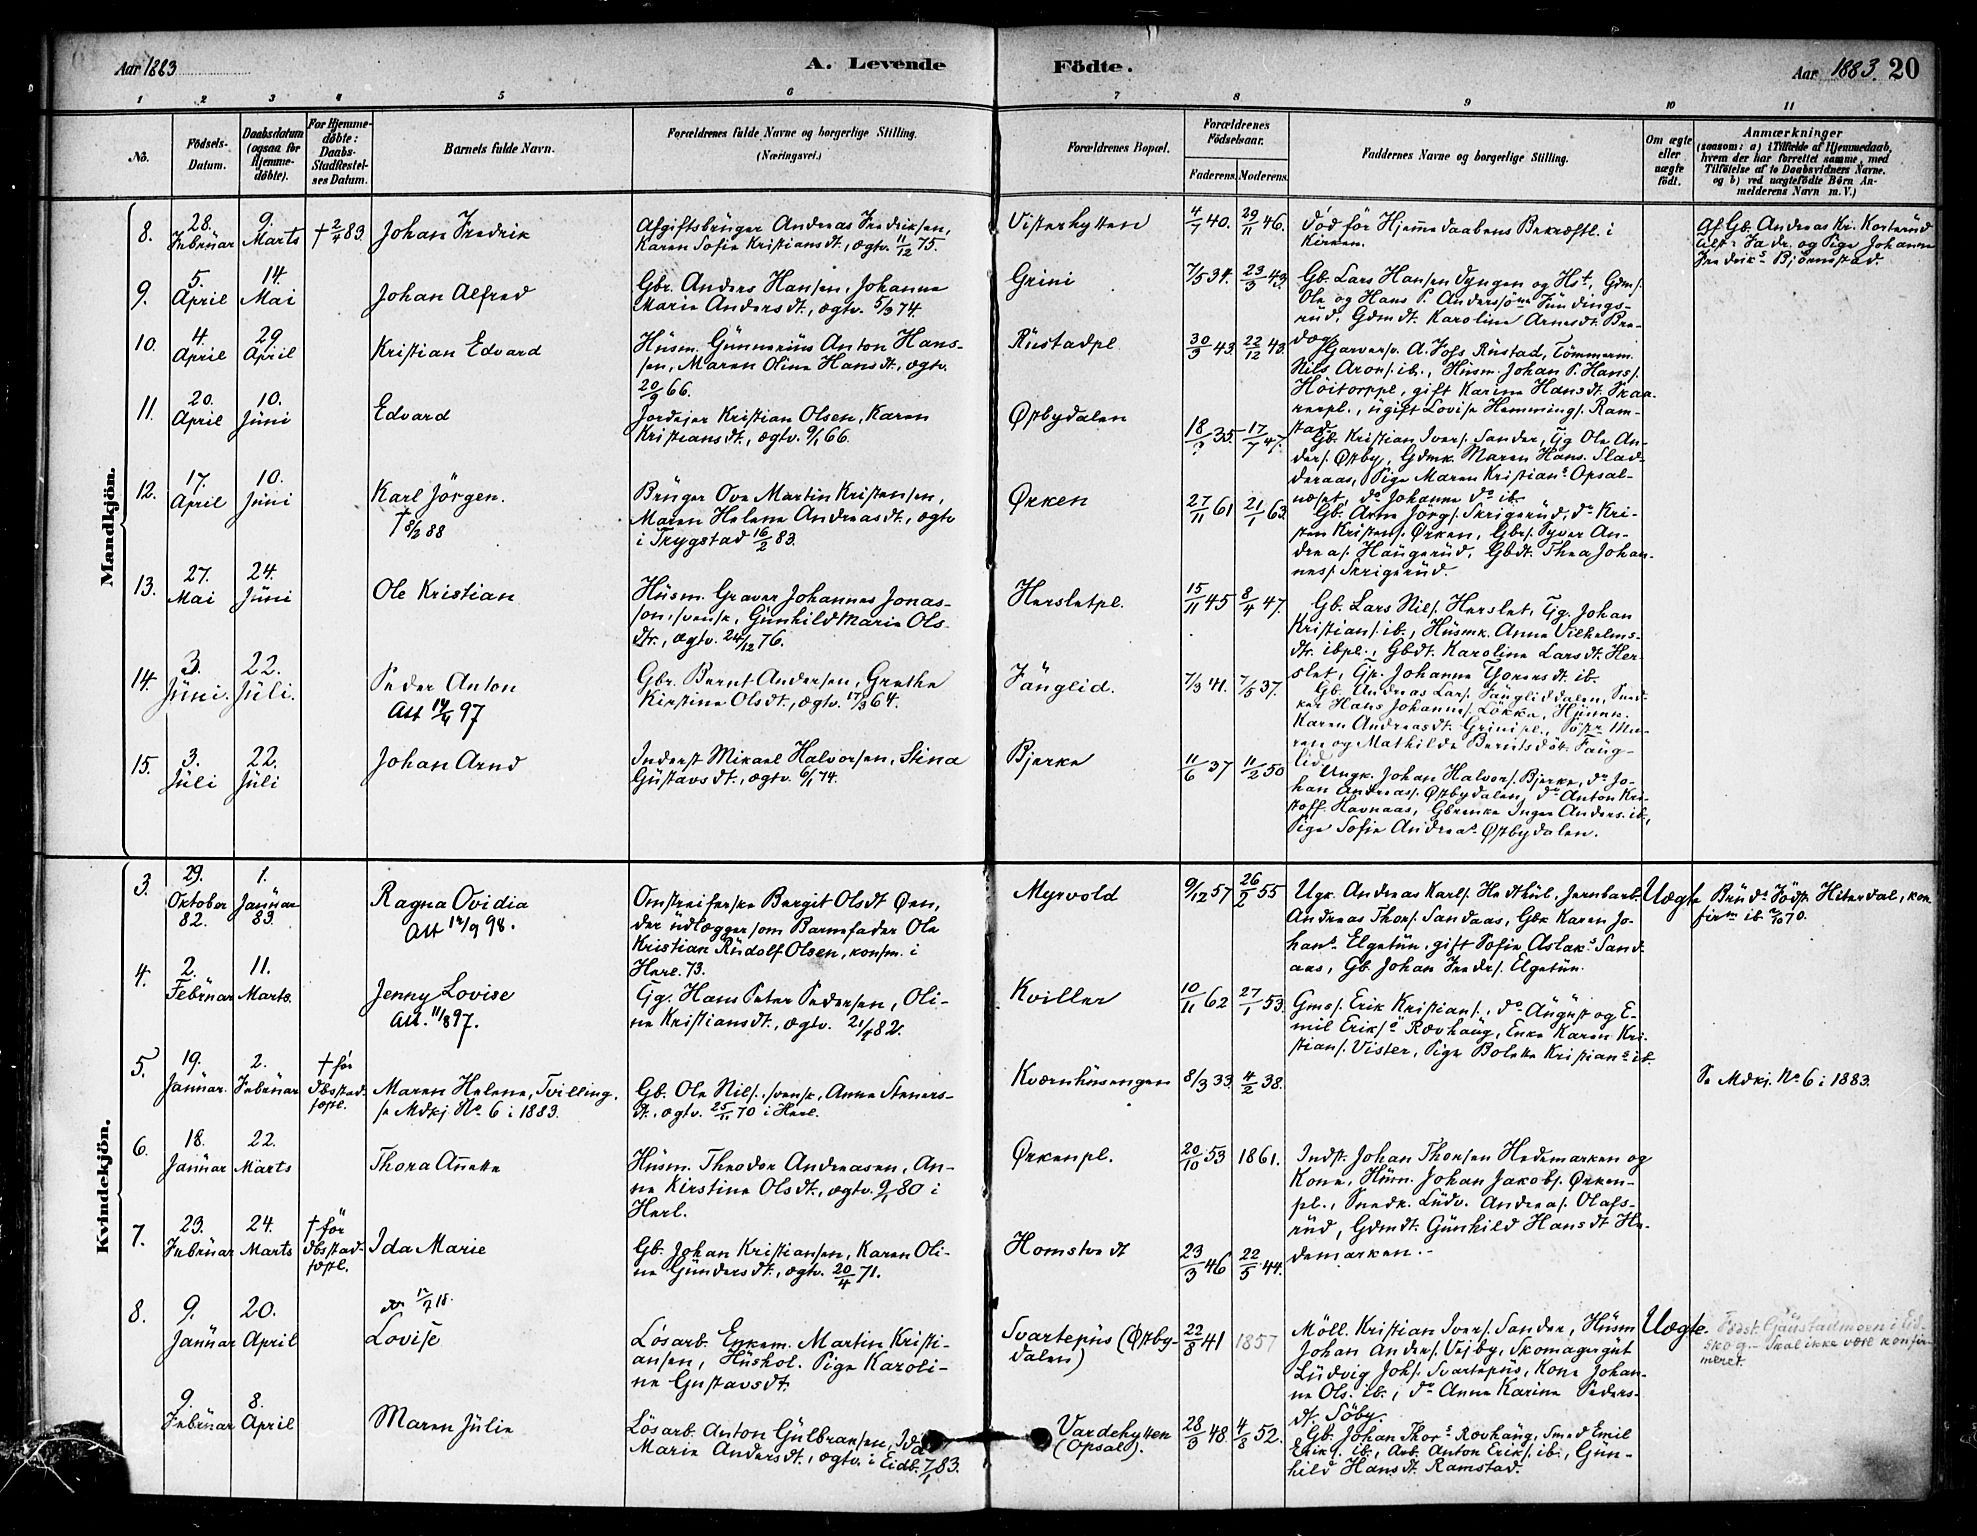 Aar 1883
A. Levende
Födte.
Aar 1883. 20
1 2 3 4 5 6 7 8 9 10 11
No.
Födsels-
Datum.
Daabsdatum
(ogsaa for
Hjemme-
döbte).
For Hjemme-
döbte:
Daabs-
Stadfæstel-
ses Datum.
Barnets fulde Navn.
Forældrenes fulde Navne og borgerlige Stilling.
(Næringsvei.)
Forældrenes Bopæl.
Forældrenes
Födselsaar.
Faderens. Moderens.
Faddernes Navne og borgerlige Stilling.
Om ægte
eller
uægte
födt.
Anmærkninger
(saasom: a) i Tilfælde af Hjemmedaab,
hvem der har forrettet samme, med
Tilföielse af to Daabsvidners Navne.
og b) ved uægtefödte Börn An-
melderens Navn m. V.)
Mandkjön.
8.
28.
Februar
9.
Marts
† 2/4 83.
Johan Fredrik
Afgiftsbruger Andreas Fredriksen,
Karen Sofie Kristiansdt., ægtv. 11/12 75.
Visterhytten
4/7 40.
29/11 46.
Död för Hjemmedaabens Bekræftl. i
Kirken.
Af Gb. Andreas Kr. Kosterud
tilst: Fadr. og Pige Johanne
Fredriks Björnstad.
9.
5.
April
14.
Mai
Johan Alfred
Gbr. Anders Hansen, Johanne
Marie Andersdt., ægtv. 5/3 74.
Grini
7/5 34.
23/3 43.
Gb. Lars Hansen Dyngen og Hst., Gdm/.
Ole og Hans P. Anderssönn Fundings-
rud, Gdmdt. Karoline Arnesdt. Bre-
dæg
10.
4.
April
29.
April
Kristian Edvard
Husm. Gunnerius Anton Hans-
sen, Maren Oline Hansdt., ægtv.
20/9 66.
Rustadpl.
30/3 43.
22/12 43.
Garversv. A. Jofs Rustad, Tömmerm.
Nils Arons. ib., Husm. Johan P. Hans/.
Höitorppl., gift Karine Hansdt. Skaa-
rerpl., ugift Lovise Hemmings. Ram-
stad.
11.
20.
April
10.
Juni
Edvard
Jordejer Kristian Olsen, Karen
Kristiansdt., ægtv. 9/1 66.
Østbydalen
18/ 35.
17/7 47.
Gb. Kristian Ivers. Sander, Tjg Ole An-
ders. Østby, Gdmk. Maren Hans. Slad-
deraas, Pige Maren Kristians Opsal-
næset, do Johanne do ib.
12.
17.
April
10.
Juni
Karl Jörgen.
† 8/2 88
Bruger Ove Martin Kristensen,
Maren Helene Andreasdt., ægtv
i Trygstad 16/2 83.
Ørken
27/11 61
21/1 63.
Gb. Arne Jörg/. Skrigerud, do Kri-
sten Kristens. Ørken, Gbrs. Syver An-
dreas. Haugerud, Gbdt. Thea Johan-
nes/. Skrigerud.
13.
27.
Mai
24.
Juni
Ole Kristian
Husm. Graver Johannes Jonas-
son, svensk, Gunhild Marie Ols-
dtr., ægtv. 24/12 76.
Hersletpl.
15/11 45
8/4 47.
Gb. Lars Nils/. Herslet, Tjg. Johan
Kristians/. ib., Husmk. Anne Vilhelms-
dt. ibpl., Gbdt. Karoline Larsdt. Her-
slet, Tjp. Johanne Thoresdt. ib.
14.
3.
Juni.
22.
Juli.
Peder Anton
Att 14/4 97
Gbr. Bernt Andersen, Grethe
Kirstine Olsdt., ægtv. 17/3 64.
Fanglid.
7/3 41.
7/5 37.
Gb. Andreas Lars/. Fangliddalen, Sned-
ker Hans Johannes. Lökka, Husmk.
Karen Andreasdt. Grinipl., Søstr Ma-
ren og Mathilde Berntsdöt. Fang-
lid.
15.
3.
Juli
22.
Juli
Johan Arnd
Inderst Mikael Halvorsen, Stina
Gustavsdt., ægtv. 6/1 74.
Bjerke
11/6 37
11/2 50
Ungk. Johan Halvors/. Bjerke, do Jo-
han Andreas/. Østbydalen, do Anton Kri-
stoff. Havnaas, Gbrenke Inger Anders. ib.,
Pige Sofie Andreas Østbydalen.
Kvindekjön.
3.
29.
Oktober
82.
1.
Januar
83.
Ragna Ovidia
Att 14/9 98.
Omstreiferske Bergit Olsdt Øen,
der udlægger som Barnefader Ole
Kristian Rudolf Olsen, konfm. i
Herl. 73.
Myrvold
9/12 57
26/2 55
Ugk. Andreas Karls/. Hedthul, Jernbarb.
Andreas Thors/. Sandaas, Gbk Karen Jo-
hans Elgetun, gift Sofie Aslaks Sand-
aas, Gb. Johan Fredr/. Elgetun.
Uægte
Bruds Födst. Hiterdal, kon-
firm ib. 2/10 70.
4.
2.
Februar
11.
Marts.
Jenny Lovise
Att. 11/8 97.
Tjg. Hans Peter Pedersen, Oli-
ne Kristiansdt., ægtv. 21/4 82.
Kviller
10/11 62
27/1 53.
Gms/. Erik Kristians/., do August og E-
mil Eriks/. Rævhaug, Enke Karen Kri-
stians/. Vister, Pige Bolette Kristians ib.
5.
19.
Januar.
2.
Februar
† för
Dbsstad-
fæstl.
Maren Helene, Tvilling,
se Mdkj No 6 i 1883.
Gb. Ole Nils/., svensk, Anne Steners-
dt., ægtv. 25/11 70 i Herl.
Kværnhusengen
8/3 33.
4/2 38.
Se Mdkj. No 6 i 1883.
6.
18.
Januar
22.
Marts
Thora Anette
Husm. Theodor Andreasen, An-
ne Kirstine Olsdt., ægtv. 9/1 80 i
Herl.
Ørkenpl.
20/10 53
1861.
Indst. Johan Thorsen Hedemarken og
Kone, Husm. Johan Jakobs/. Ørken-
pl., Snedk. Ludv. Andreas/. Olafs-
rud, Gdmdt. Gunhild Hansdt He-
demarken.-
7.
23.
Februar
24.
Marts
† för
Dbsstad-
fæstl.
Ida Marie
Gb. Johan Kristiansen, Karen Oli-
ne Gundersdt., ægtv. 20/4 71.
Homstvedt
23/3 46
22/5 44.
8.
9.
Januar
20.
April
Lovise
Lösarb. Enkem. Martin Kristi-
ansen, Hushol. Pige Karoli-
ne Gustavsdt.
Svartepus (Østby-
dalen)
22/8 41
1857
Möll. Kristian Ivers/. Sander, Husm
Johan Anders/. Vesby, Skomagergut
Ludvig Johs/. Svartepus, Kone Johan-
ne Ols. ib., do Anne Karine Peders-
dt. Söby.
Uægte.
Födst. Gaustadmoen i Eid-
skog.- Skal ikke være konfir-
meret.
9.
Februar
8.
April
Maren Julie
Lösarb. Anton Gulbransen, Ida
Marie Andersdt., ægtv. i Eidb. 7/1 83.
Vardehytten
(Opsal).
28/3 48.
4/8 52.
Gb. Johan Thors Rævhaug, Smed Emil
Eriks/. ib., Arb. Anton Eriks/. ib., Gun-
hild Hansdt. Ramstad.